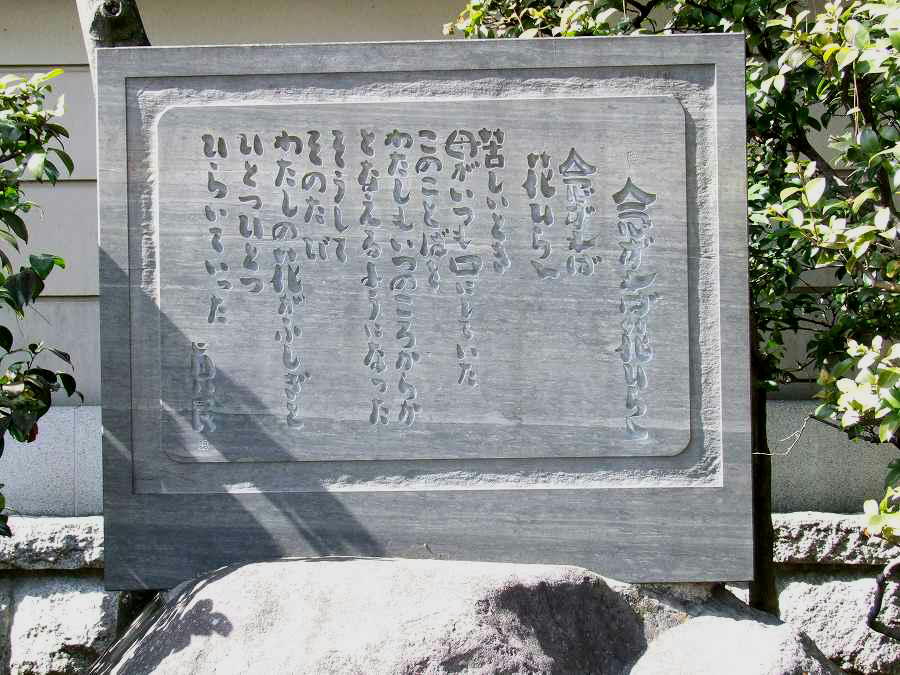 念ずれば花ひらく
念ずれば
花ひらく
苦しいとき
母がいつも口にしていた
このことばを
わたしもいつのころからか
となえるようになった
そうして
そのたび
わたしの花がふしぎと
ひとつひとつ
ひらいていった
真民